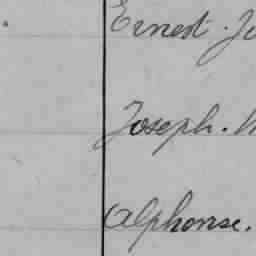 Ernest. Ju
Joseph.
Alphonse.